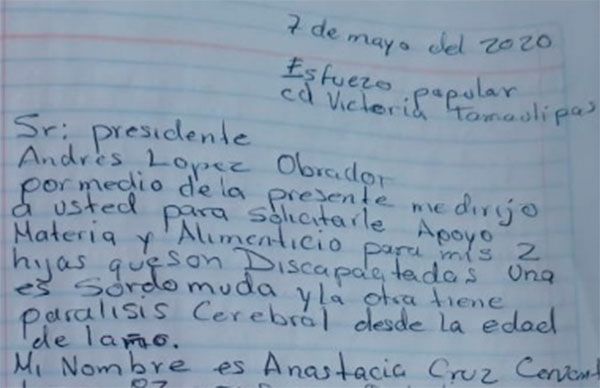 7 de mayo del 2020
Esfuezo popular
cd Victoria Tamaulipas
Sr: presidente
Andres Lopez Obrador
por medio de la presente me dirijo
a usted para solicitarle Apoyo
Materia y Alimenticio para mis 2
hijas que son Discapacitadas Una
es Sordo muda y la otra tiene
paralisis Cerebral desde la edad
de 1 año.
Mi Nombre es Anastacia Cruz Cervant